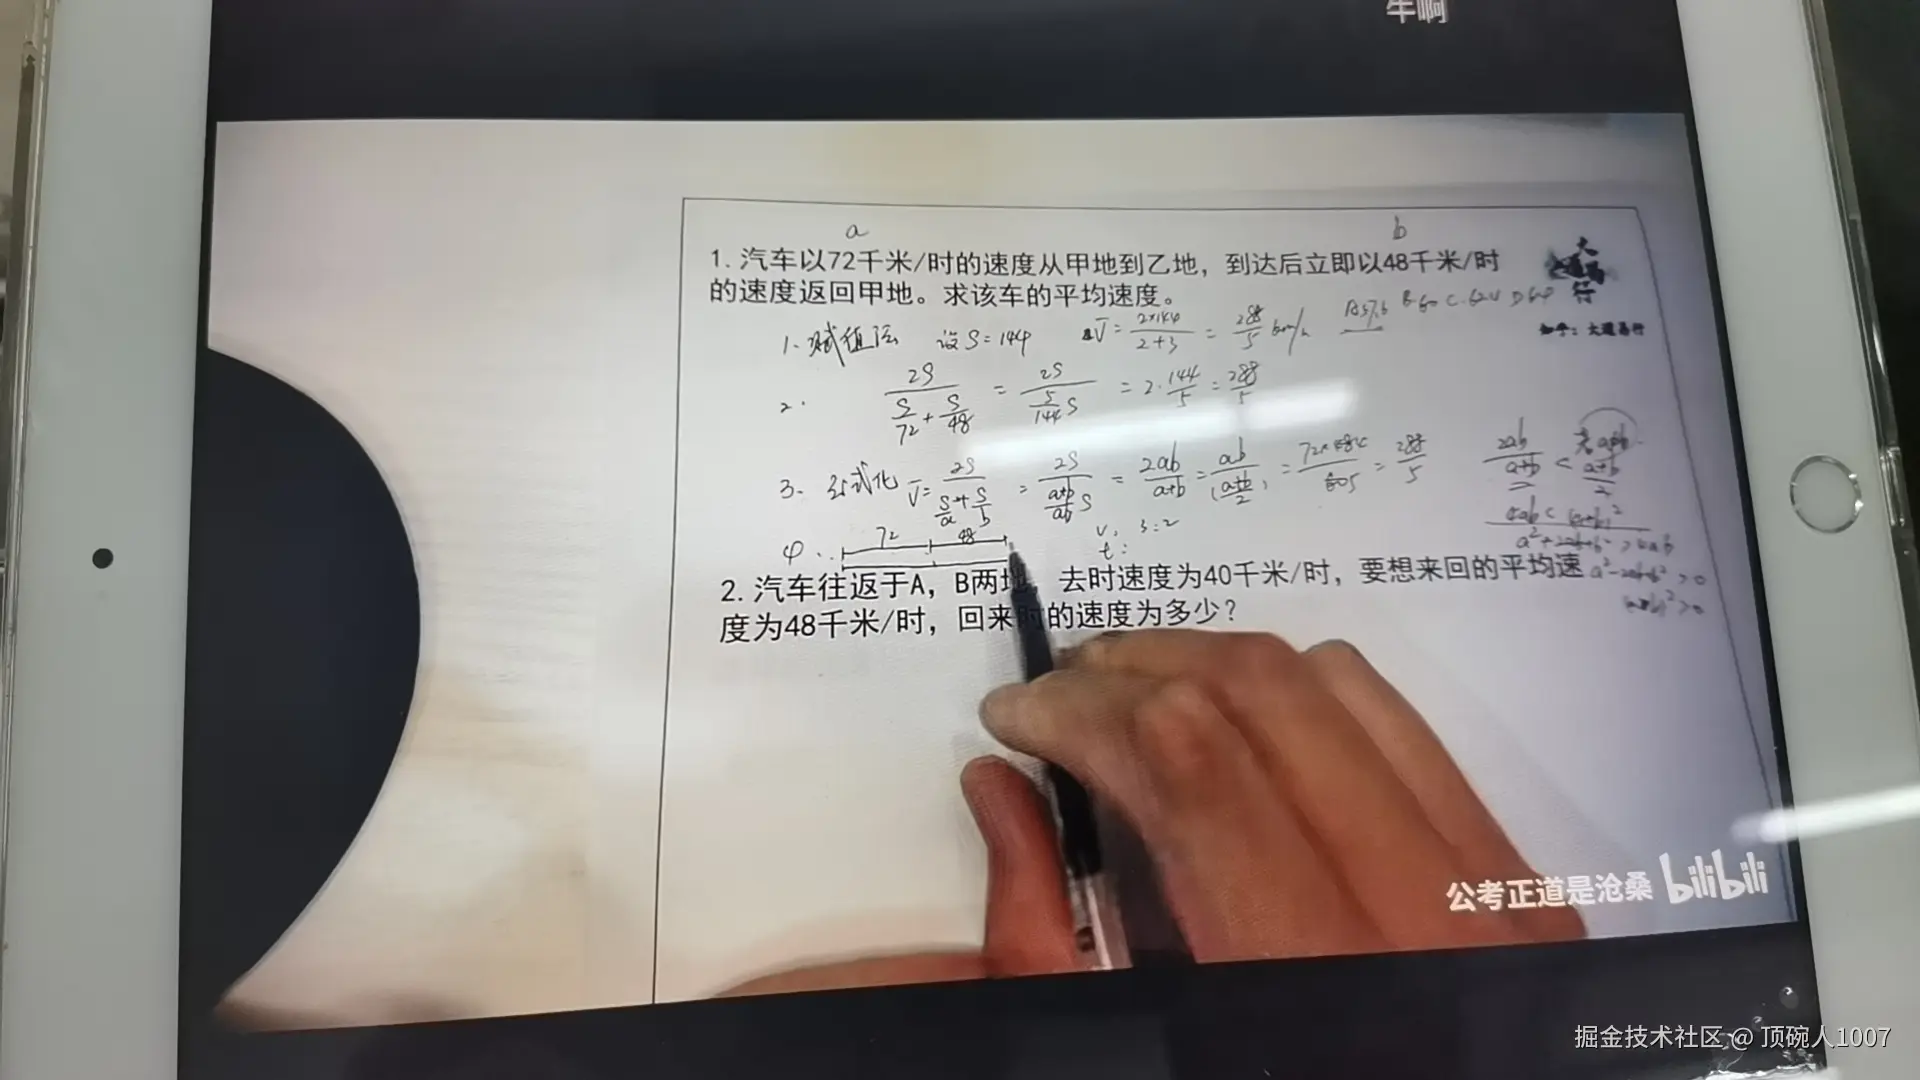 牛啊
a
b
1. 汽车以72千米/时的速度从甲地到乙地，到达后立即以48千米/时
的速度返回甲地。求该车的平均速度。
大道易行
知乎：大道易行
1、赋值法 设S=144 V̄=2×144/(2+3) = 288/5 km/h
2. 2S/(S/72+S/48) = 2S/(5/144 S) = 2·144/5 = 288/5
3、公式化 V̄=2S/(S/a+S/b) = 2S/((a+b)/ab S) = 2ab/(a+b) = ab/((a+b)/2) = = 288/5
2ab/(a+b) < (a+b)/2
4ab< (a+b)²
a²+2ab+b²>4ab
a²-2ab+b²>0
(a-b)²>0
4. 72 48
V: 3:2
t:
2. 汽车往返于A，B两地，去时速度为40千米/时，要想来回的平均速
度为48千米/时，回来时的速度为多少？
公考正道是沧桑 bilibili
掘金技术社区 @ 顶碗人1007